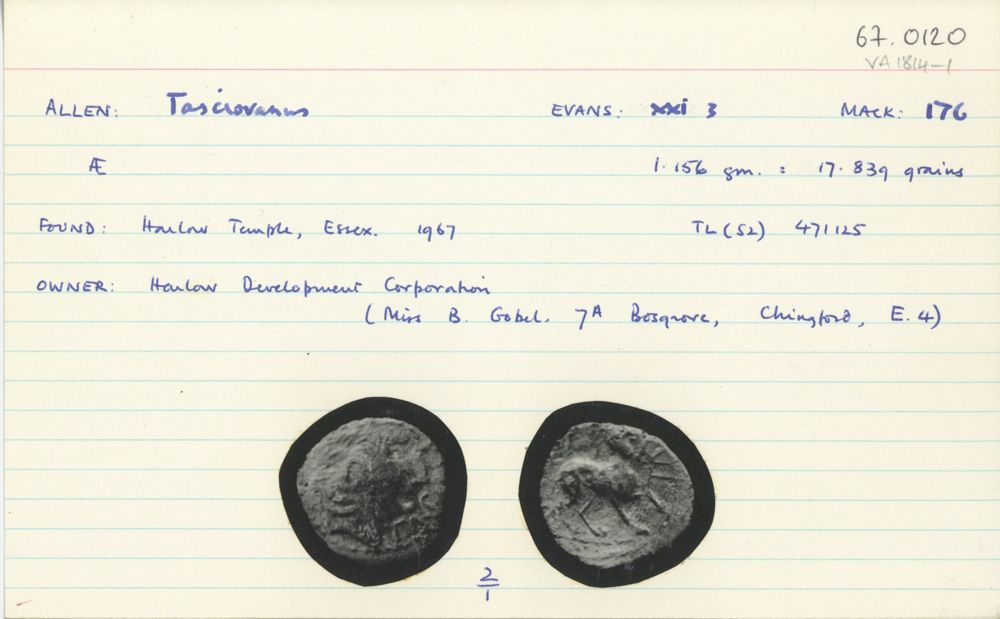 67.0120
VA 1814-1
ALLEN: Tasciovanus EVANS: xxi 3 MACK: 176
Æ 1.156 gm. = 17.839 grains
FOUND: Harlow Temple, Essex. 1967 TL (52) 471125
OWNER: Harlow Development Corporation
(Miss B. Gobel. 7A Bosgrove, Chingford, E.4)
2/1